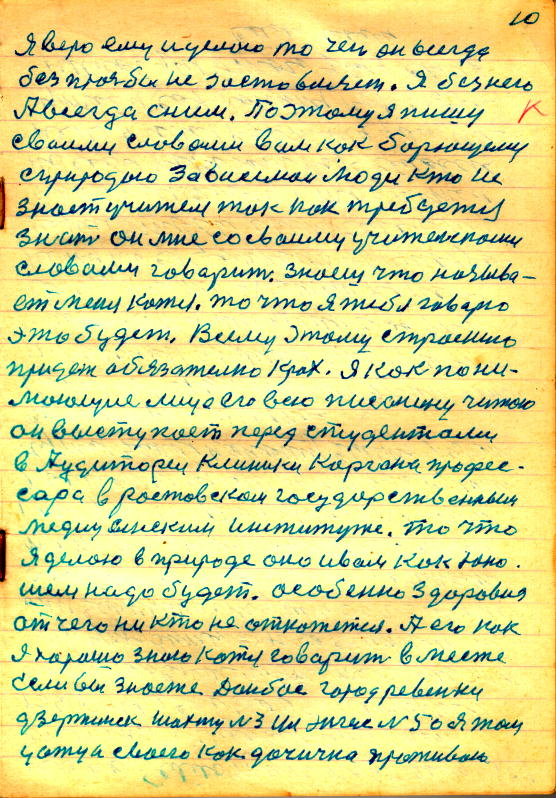 10
Я веро ему и делаю то чем он всегда
без прозьбы не заставляет. Я без него
А всегда сним. Поэтому я пишу
К
сваими словами вам как борющему
сприродою Зависимаи люди кто не
знает учителя так как требуется
знать он мне сосваими учительскими
словами говарит. знаеш что называ-
ет меня Катя. то что я тебя говарю
это будет. Всему этому строению
придет обязателно Крах. Я как пони-
мающие лицо его всю писанину читаю
он выступает перед студентами
в Аудитореи Клиники Каргана профес-
сара в ростовскам государственным
медицынским институте. то что
я делаю в природе оно и вам как юно.
шем надо будет. особенно Здоровия
от чего ни кто не откажется. А его как
я харашо знаю Катя говарит в месте
если вы знаете Данбас город ревенки
дзержинск шахту №3 №50 я там
у отца своего как дачичка проживаю